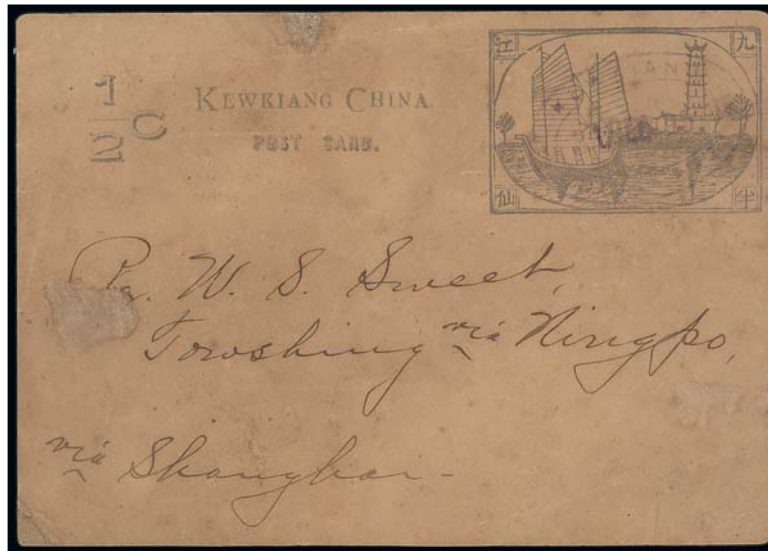 1/2 C
KEWKIANG CHINA.
POST CARD.
江 九
仙 半
IAN
W. S. Sweet,
via Ningpo,
via Shanghai -